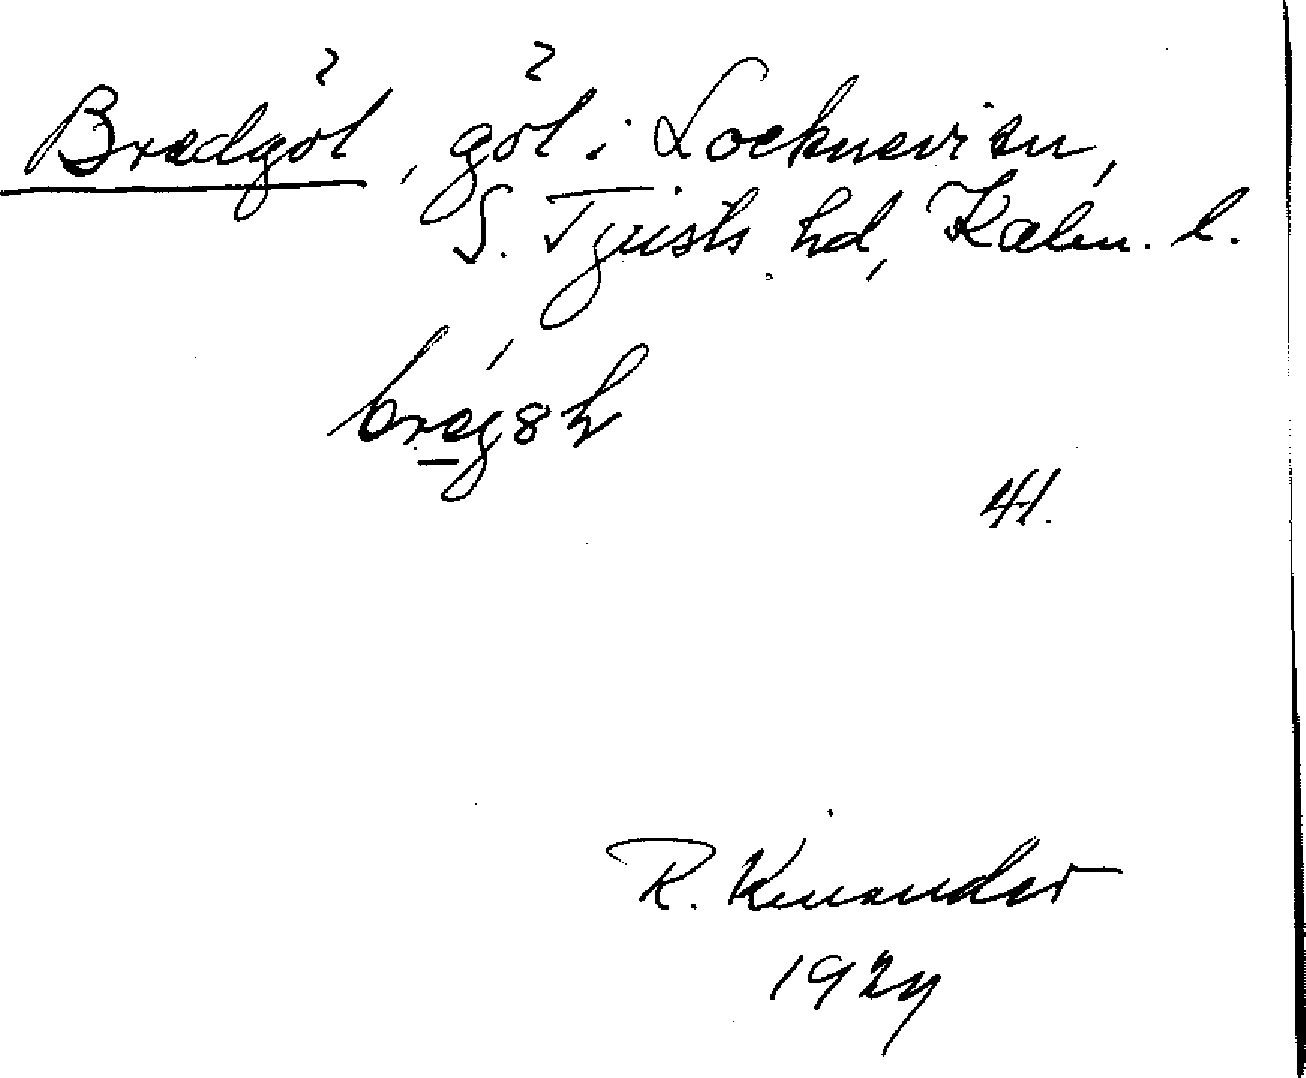 Bredgöl, göl i Locknevi sn,
S. Tjusts hd, Kalm. l.
R. Kinander
1927